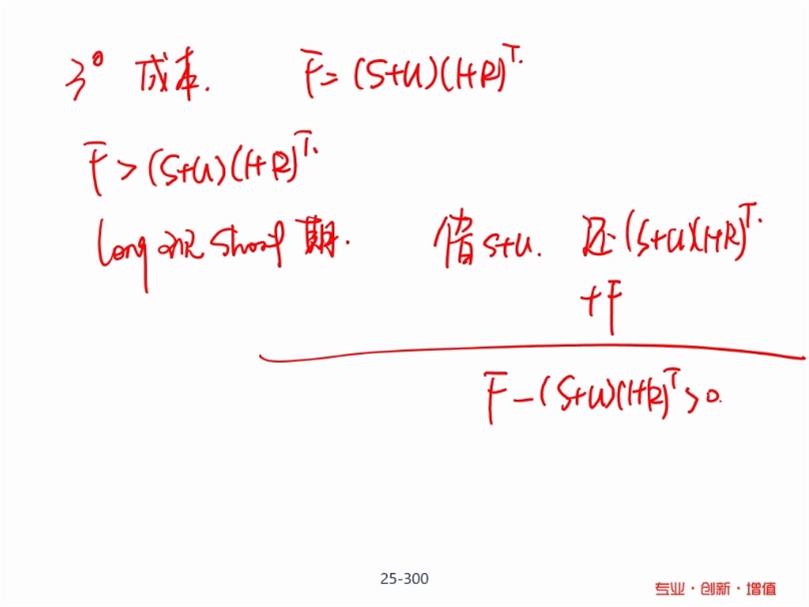 3° 成本. F = (S+U)(1+R)^T.
F > (S+U)(1+R)^T.
long 现 short 期. 借 S+U. 还 (S+U)(1+R)^T.
+F
F - (S+U)(1+R)^T > 0.
25-300
专业·创新·增值